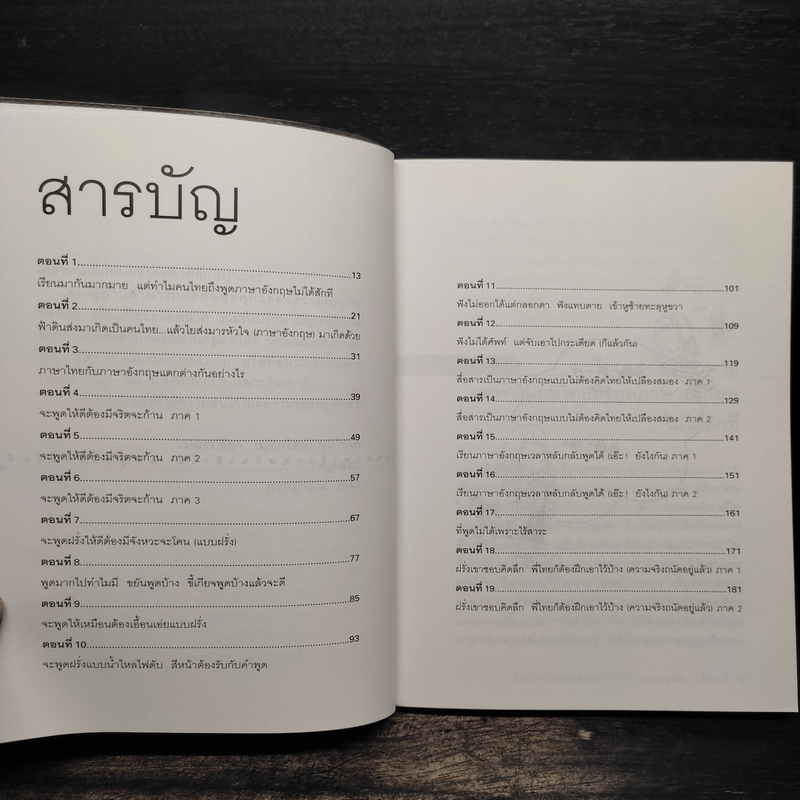 สารบัญ
ตอนที่ 1...............................................................................13
เรียนมากันมากมาย แต่ทำไมคนไทยถึงพูดภาษาอังกฤษไม่ได้สักที
ตอนที่ 2...............................................................................21
ฟ้าดินส่งมาเกิดเป็นคนไทย...แล้วไยส่งมารหัวใจ (ภาษาอังกฤษ) มาเกิดด้วย
ตอนที่ 3...............................................................................31
ภาษาไทยกับภาษาอังกฤษแตกต่างกันอย่างไร
ตอนที่ 4...............................................................................39
จะพูดให้ดีต้องมีจริตจะก้าน ภาค 1
ตอนที่ 5...............................................................................49
จะพูดให้ดีต้องมีจริตจะก้าน ภาค 2
ตอนที่ 6...............................................................................57
จะพูดให้ดีต้องมีจริตจะก้าน ภาค 3
ตอนที่ 7...............................................................................67
จะพูดฝรั่งให้ดีต้องมีจังหวะจะโคน (แบบฝรั่ง)
ตอนที่ 8...............................................................................77
พูดมากไปทำไมมี ขยันพูดบ้าง ขี้เกียจพูดบ้างแล้วจะดี
ตอนที่ 9...............................................................................85
จะพูดให้เหมือนต้องเอื้อนเอ่ยแบบฝรั่ง
ตอนที่ 10...............................................................................93
จะพูดฝรั่งแบบน้ำไหลไฟดับ สีหน้าต้องรับกับคำพูด
ตอนที่ 11...............................................................................101
ฟังไม่ออกได้แต่กลอกตา ฟังแทบตาย เข้าหูซ้ายทะลุหูขวา
ตอนที่ 12...............................................................................109
ฟังไม่ได้ศัพท์ แต่จับเอาไปกระเดียด (ก็แล้วกัน)
ตอนที่ 13...............................................................................119
สื่อสารเป็นภาษาอังกฤษแบบไม่ต้องคิดไทยให้เปลืองสมอง ภาค 1
ตอนที่ 14...............................................................................129
สื่อสารเป็นภาษาอังกฤษแบบไม่ต้องคิดไทยให้เปลืองสมอง ภาค 2
ตอนที่ 15...............................................................................141
เรียนภาษาอังกฤษเวลาหลับกลับพูดได้ (เอ๊ะ! ยังไงกัน) ภาค 1
ตอนที่ 16...............................................................................151
เรียนภาษาอังกฤษเวลาหลับกลับพูดได้ (เอ๊ะ! ยังไงกัน) ภาค 2
ตอนที่ 17...............................................................................161
ที่พูดไม่ได้เพราะไร้สาระ
ตอนที่ 18...............................................................................171
ฝรั่งเขาชอบคิดลึก พี่ไทยก็ต้องฝึกเอาไว้บ้าง (ความจริงถนัดอยู่แล้ว) ภาค 1
ตอนที่ 19...............................................................................181
ฝรั่งเขาชอบคิดลึก พี่ไทยก็ต้องฝึกเอาไว้บ้าง (ความจริงถนัดอยู่แล้ว) ภาค 2